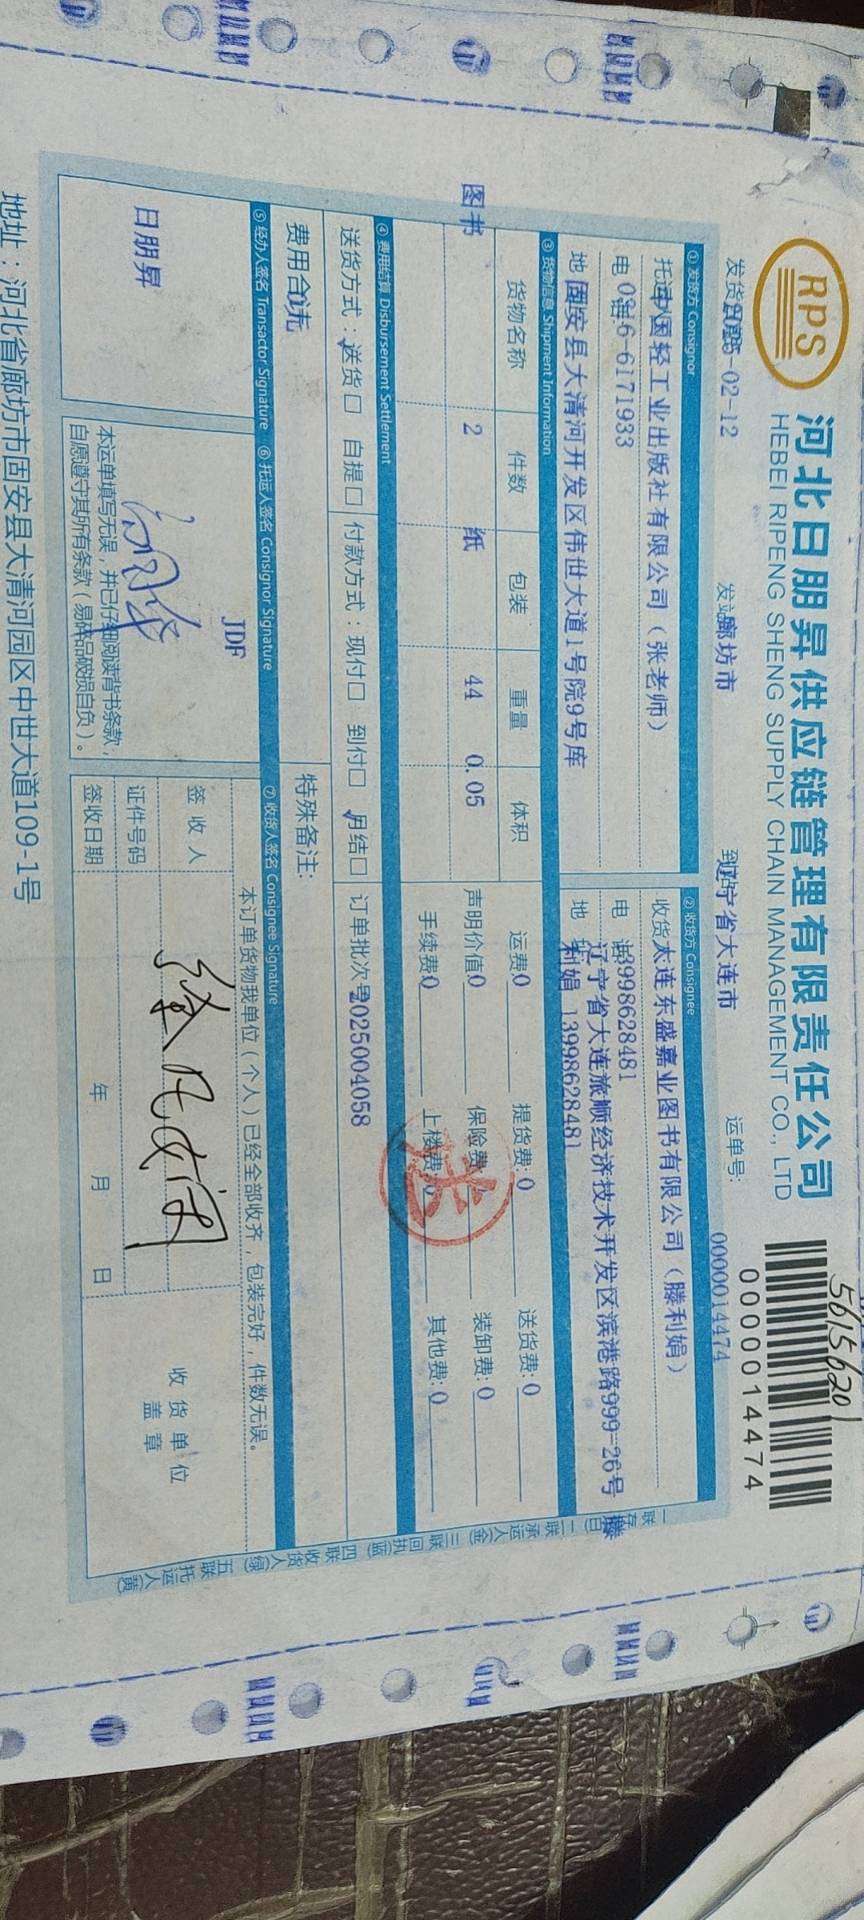 RPS
河北日朋昇供应链管理有限责任公司
HEBEI RIPENG SHENG SUPPLY CHAIN MANAGEMENT CO., LTD
56156201
0000014474
发货 2025-02-12 发站 廊坊市 到 辽宁省大连市 运单号: 0000014474
① 发货方 Consignor
托运 中国轻工业出版社有限公司（张老师）
电 0316-6171933
地 固安县大清河开发区伟世大道1号院9号库
② 收货方 Consignee
收货 大连东盛嘉业图书有限公司（滕利娟）
电 13998628481
地 辽宁省大连旅顺经济技术开发区滨港路999-26号 滕
利娟 13998628481
③ 货物信息 Shipment Information
货物名称 件数 包装 重量 体积
图书 2 纸 44 0.05
运费 0 提货费: 0 送货费: 0
声明价值 0 保险费: 装卸费: 0
手续费 0 上楼费: 0 其他费: 0
④ 费用结算 Disbursement Settlement
送货方式：送货□ 自提□ 付款方式：现付□ 到付□ 月结□ 订单批次号 2025004058
费用合计 元 特殊备注:
⑤ 经办人签名 Transactor Signature ⑥ 托运人签名 Consignor Signature ⑦ 收货人签名 Consignee Signature
日朋昇
JDF
本运单填写无误，并已仔细阅读背书条款，
自愿遵守其所有条款（易碎品破损自负）。
本订单货物我单位（个人）已经全部收齐，包装完好，件数无误。
签收人
证件号码
签收日期 年 月 日
收货单位
盖章
一联存根(白) 二联承运人(金) 三联回执(蓝) 四联收货人(绿) 五联托运人(黄)
地址：河北省廊坊市固安县大清河园区中世大道109-1号